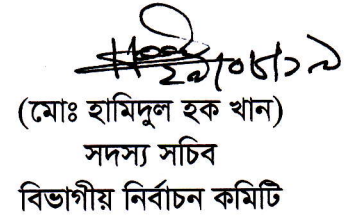 (মোঃ হামিদুল হক খান)
সদস্য সচিব
বিভাগীয় নির্বাচন কমিটি